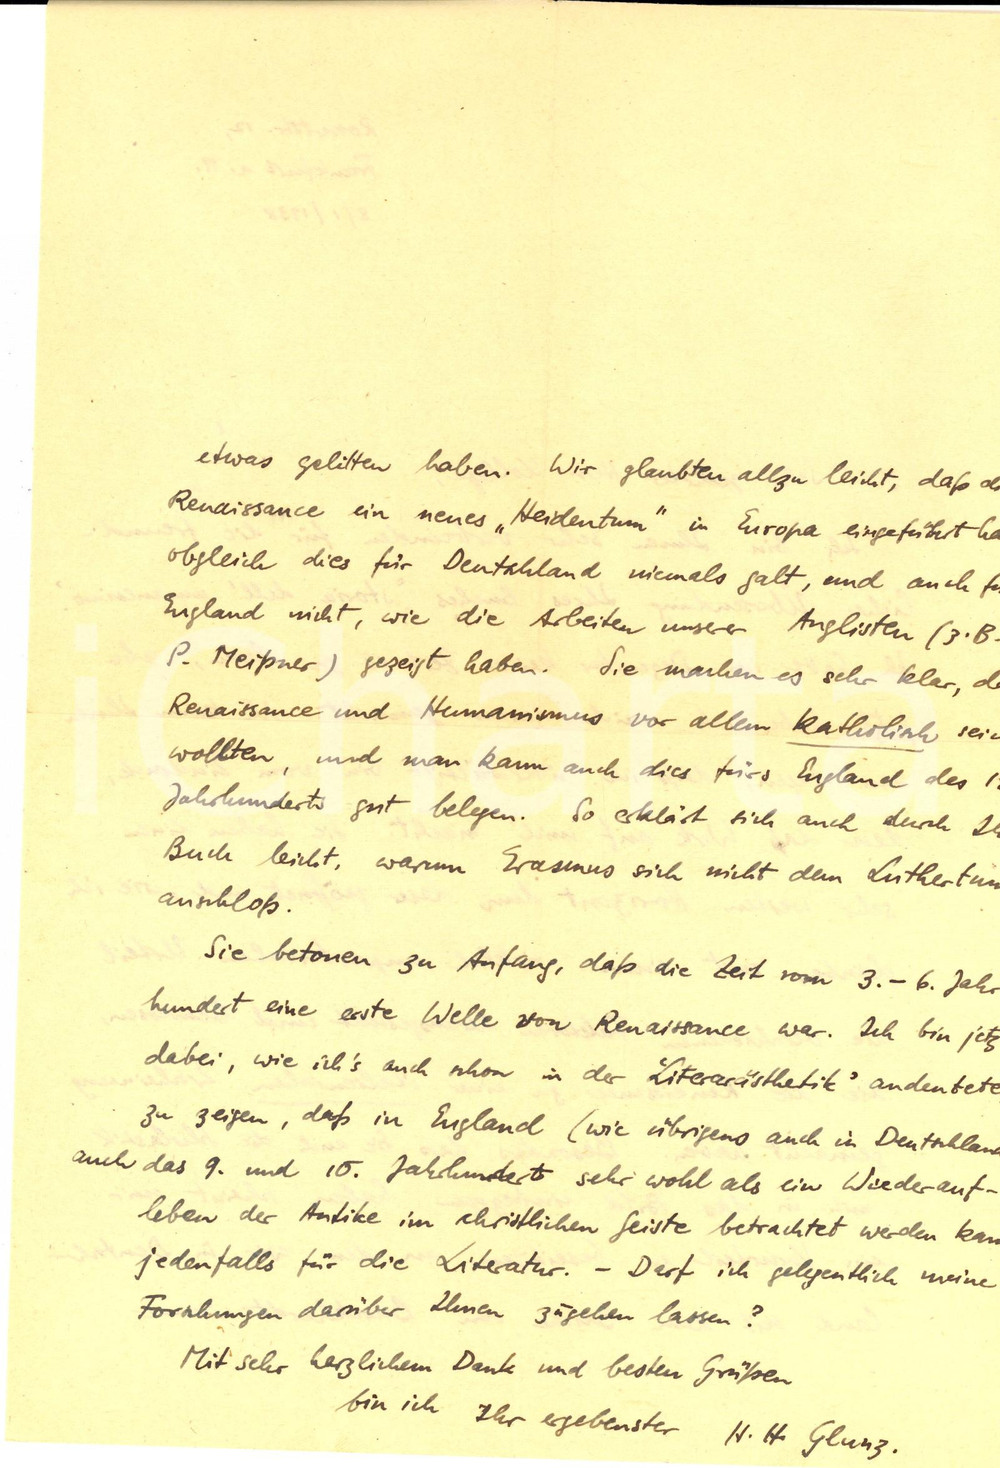 etwas gelitten haben. Wir glaubten allzu leicht, daß d
Renaissance ein neues „Heidentum" in Europa eingeführt ha
obgleich dies für Deutschland niemals galt, und auch fü
England nicht, wie die Arbeiten unserer Anglisten (z.B.
P. Meißner) gezeigt haben. Sie machen es sehr klar, d
Renaissance und Humanismus vor allem katholisch sein
wollten, und man kann auch dies fürs England des 1
Jahrhunderts gut belegen. So erklärt sich auch durch Ih
Buch leicht, warum Erasmus sich nicht dem Luthertum
anschloß.
Sie betonen zu Anfang, daß die Zeit vom 3.–6. Jahr
hundert eine erste Welle von Renaissance war. Ich bin jetz
dabei, wie ich's auch schon in der 'Literarästhetik' andeutete
zu zeigen, daß in England (wie übrigens auch in Deutschland
auch das 9. und 10. Jahrhundert sehr wohl als ein Wiederauf-
leben der Antike im christlichen Geiste betrachtet werden kan
jedenfalls für die Literatur. – Darf ich gelegentlich meine
Forschungen darüber Ihnen zugehen lassen?
Mit sehr herzlichem Dank und besten Grüßen
bin ich Ihr ergebenster H. H. Glunz.